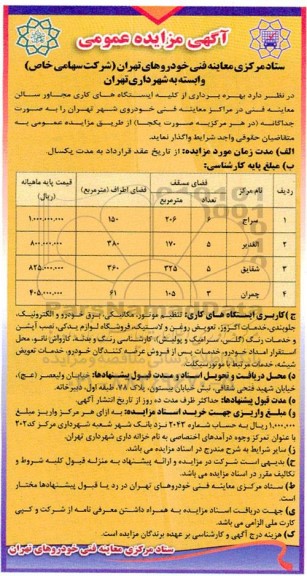 آگهی مزایده عمومی
ستاد مرکزی معاینه فنی خودروهای تهران (شرکت سهامی خاص)
وابسته به شهرداری تهران
در نظر دارد بهره برداری از کلیه ایستگاه های کاری مجاور سالن
معاینه فنی در مراکز معاینه فنی خودروی شهر تهران را به صورت
جداگانه (در هر مرکز به صورت یکجا) از طریق مزایده عمومی به
متقاضیان حقوقی واجد شرایط واگذار نماید.
الف) مدت زمان مورد مزایده: از تاریخ عقد قرارداد به مدت یکسال.
ب) مبلغ پایه کارشناسی:
ردیف نام مرکز فضای مسقف فضای اطراف (مترمربع) قیمت پایه ماهیانه
تعداد مترمربع
۱ سراج ۶ ۲۰۶ ۱۵۰ ۱.۰۰۰.۰۰۰.۰۰۰
۲ الغدیر ۵ ۱۷۰ ۳۸۰ ۸۰۰.۰۰۰.۰۰۰
۳ شقایق ۵ ۳۲۵ ۳۶۰ ۸۲۵.۰۰۰.۰۰۰
۴ چمران ۳ ۱۰۵ ۶۱ ۴۰۵.۰۰۰.۰۰۰
ج) کاربری ایستگاه های کاری: تنظیم موتور، مکانیکی، برق خودرو و الکترونیک،
جلوبندی، خدمات اگزوز، تعویض روغن و لاستیک، فروشگاه لوازم یدکی، نصب آپشن
و خدمات رنگ (گلس، سرامیک و پولیش)، کارشناسی رنگ و بدنه، کارواش نانو، محل
استقرار امداد خودرو، خدمات پس از فروش عرضه کنندگان خودرو، خدمات تعویض
شیشه، خدمات مرتبط با موتورسیکلت.
د) محل دریافت و تحویل اسناد و مدت قبول پیشنهادها: خیابان ولیعصر (عج)،
خیابان شهید فتحی شقاقی، نبش خیابان بیستون، پلاک ۷۸، طبقه اول، دبیرخانه.
ه) مدت قبول پیشنهادها: حداکثر ظرف مدت ده روز از تاریخ انتشار آگهی.
و) مبلغ واریزی جهت خرید اسناد مزایده: به ازای هر مرکز واریز مبلغ
۱.۰۰۰.۰۰۰ ریال به حساب شماره ۲۰۴۳ نزد بانک شهر شعبه شهرداری مرکز کد ۲۰۲
با عنوان تمرکز وجوه درآمدهای اختصاصی به نام خزانه داری شهرداری تهران.
ز) سایر شرایط به شرح مندرج در اسناد مزایده می باشد.
ح) بدیهی است شرکت در مزایده و ارائه پیشنهاد به منزله قبول کلیه شروط و
تکالیف مقرر در اسناد مزایده می باشد.
ط) ستاد مرکزی معاینه فنی خودروهای تهران در رد یا قبول پیشنهادها مختار
است.
ی) جهت دریافت اسناد مزایده به همراه داشتن معرفی نامه از شرکت و کپی
کارت ملی الزامی می باشد.
ک) هزینه درج آگهی و کارشناسی بر عهده برندگان مزایده است.
ستاد مرکزی معاینه فنی خودروهای تهران